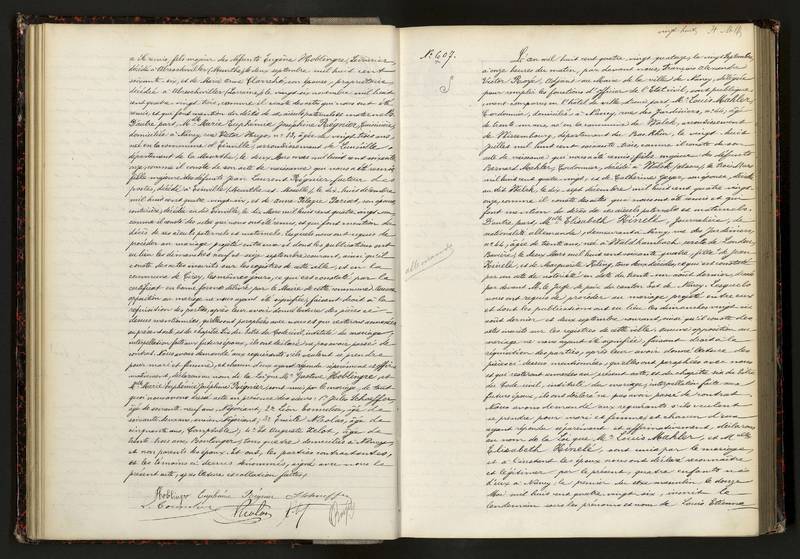 a Xirmé, fils majeur des défunts Eugène Hoblingre, Tuilier
décédé à Abreschviller (Meurthe) le deux septembre mil huit cent
soixante six, et de Marie Anne Clavoché, son épouse, propriétaire
décédée à Abreschviller (Lorraine) le vingt six novembre mil huit
cent quatre vingt trois, comme il conste des actes qui nous ont été
remis et qui font mention des décès de ses aïeuls paternels et maternels
D'autre part, Mlle Marie Euphémie Joséphine Régnier, Couturière,
domiciliée à Nancy rue Victor Hugo nº 13, âgée de vingt trois ans,
née en la commune d'Einville, arrondissement de Lunéville
département de la Meurthe, le deux Mars mil huit cent soixante
onze, comme il conste de son acte de naissance qui nous a été remis
fille majeure des défunts Jean Laurent Régnier, facteur des
postes, décédé à Einville (Meurthe et Moselle), le dix huit décembre
mil huit cent quatre vingt un, et de Anne
comme il conste des actes qui nous ont été remis, et qui font mention des
décès de ses aïeuls paternels et maternels. Lesquels nous ont requis de
procéder au mariage projeté entre eux et dont les publications ont
eu lieu les dimanches neuf et seize septembre courant, ainsi qu'il
conste des actes inscrits sur les registres de cette ville, et en la
commune de Cirey les mêmes jours, ce qui est constaté par le
certificat en bonne forme délivré par le Maire de cette commune. Aucune
opposition au mariage ne nous ayant été signifiée, faisant droit à la
réquisition des parties, après leur avoir donné lecture des pièces ci-
dessus mentionnées, qu'elles ont paraphées avec nous et qui resteront annexées
au présent acte, et du chapitre six du titre du Code civil, intitulé du mariage,
interpellation faite aux futurs époux, ils ont déclaré ne pas avoir passé de
contrat. Nous avons demandé aux requérants s'ils veulent se prendre
pour mari et femme; et chacun d'eux ayant répondu séparément et affir-
mativement, déclarons au nom de la loi que Mr Gustave Hoblingre et
Mlle Marie Euphémie Joséphine Régnier sont unis par le mariage. De tout
quoi nous avons dressé acte en présence des sieurs: 1º Jules Schaeffer,
âgé de soixante neuf ans, Négociant, 2º Léon Cornebois, âgé de
ans, Négociant, 3º Emile Nicolas, âgé de
cinquante ans, Comptable, 4º et Auguste Pelot, âgé de
trente trois ans, Boulanger, tous quatre domiciliés à Nancy
et non parents des époux. Et ont, les parties contractantes,
et les témoins ci dessus dénommés, signé avec nous le
présent acte, après lecture et collation faites.
Hoblingre Euphémie Régnier Schaeffer
Nicolas
vingt huit,
Nº 607.
allemande
L'an mil huit cent quatre vingt quatorze, le vingt septembre,
à onze heures du matin, par devant nous François Alexandre
Victor Royé, Adjoint au Maire de la ville de Nancy, délégué
pour remplir les fonctions d'officier de l'Etat civil, sont publique-
ment comparus en l'hôtel de ville, d'une part Mr Louis Mahler,
Cordonnier, domicilié à Nancy, rue des Jardiniers, âgé
de trente un ans, né en la commune de Walsh, arrondissement
de Wissembourg, département du Bas Rhin, le vingt huit
juillet mil huit cent soixante trois, comme il conste de son
acte de naissance qui nous a été remis, fils majeur des défunts
Bernard Mahler, Cordonnier, décédé à Walsh (Alsace), le
mil huit cent quatre vingt, et de Catherine Jager, son épouse, décédée
au dit Walsh, le dix sept décembre mil huit cent quatre vingt
onze, comme il conste des actes qui nous ont été remis et qui
font mention du décès de ses aïeuls paternels et maternels.
D'autre part, Mlle Elisabeth Kinelle, Journalière, de
nationalité allemande, demeurant à Nancy rue des Jardiniers,
nº 64, âgée de trente ans, née à Waldhambach, cercle de Landau,
Bavière, le deux Mars mil huit cent soixante quatre, fille de Jean
Kinelle, et de Marguerite Kiling, tous deux décédés, ce qui est constaté
par un acte de notoriété en date du trente un août dernier, dressé
par devant M. le Juge de paix du canton Est de Nancy. Lesquels
nous ont requis de procéder au mariage projeté entre eux
et dont les publications ont eu lieu les dimanches vingt six
août dernier et deux septembre courant, ainsi qu'il conste des
actes inscrits sur les registres de cette ville. Aucune opposition au
mariage ne nous ayant été signifiée, faisant droit à la
réquisition des parties, après leur avoir donné lecture des
pièces ci-dessus mentionnées, qu'elles ont paraphées avec nous
et qui resteront annexées au présent acte, et du chapitre six du titre
du Code civil, intitulé du mariage, interpellation faite aux
futurs époux, ils ont déclaré ne pas avoir passé de contrat.
Nous avons demandé aux requérants s'ils veulent
se prendre pour mari et femme; et chacun d'eux
ayant répondu séparément et affirmativement, déclarons
au nom de la loi que Mr Louis Mahler, et Mlle
Elisabeth Kinelle, sont unis par le mariage,
et à l'instant les époux nous ont déclaré reconnaître
et légitimer par le présent, quatre enfants nés
d'eux à Nancy: le premier du sexe masculin le douze
Mai mil huit cent quatre vingt six, inscrit le
lendemain sous les prénoms et nom de Louis Etienne